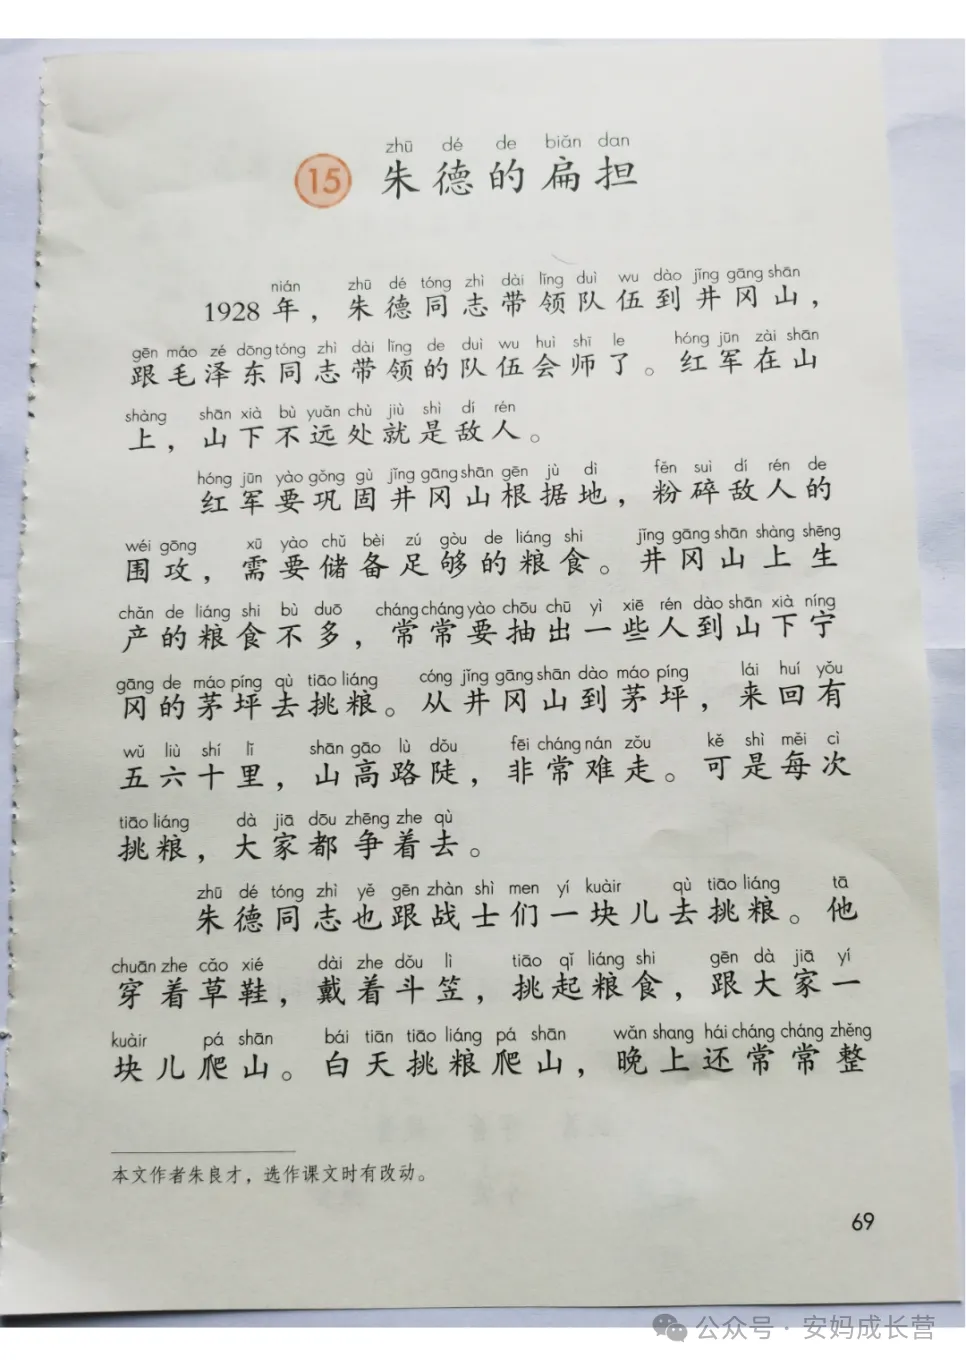 zhū dé de biǎn dan
15 朱德的扁担
nián zhū dé tóng zhì dài lǐng duì wu dào jǐng gāng shān
1928年，朱德同志带领队伍到井冈山，
gēn máo zé dōng tóng zhì dài lǐng de duì wu huì shī le hóng jūn zài shān
跟毛泽东同志带领的队伍会师了。红军在山
shàng shān xià bù yuǎn chù jiù shì dí rén
上，山下不远处就是敌人。
hóng jūn yào gǒng gù jǐng gāng shān gēn jù dì fěn suì dí rén de
红军要巩固井冈山根据地，粉碎敌人的
wéi gōng xū yào chǔ bèi zú gòu de liáng shi jǐng gāng shān shàng shēng
围攻，需要储备足够的粮食。井冈山上生
chǎn de liáng shi bù duō cháng cháng yào chōu chū yì xiē rén dào shān xià níng
产的粮食不多，常常要抽出一些人到山下宁
gāng de máo píng qù tiāo liáng cóng jǐng gāng shān dào máo píng lái huí yǒu
冈的茅坪去挑粮。从井冈山到茅坪，来回有
wǔ liù shí lǐ shān gāo lù dǒu fēi cháng nán zǒu kě shì měi cì
五六十里，山高路陡，非常难走。可是每次
tiāo liáng dà jiā dōu zhēng zhe qù
挑粮，大家都争着去。
zhū dé tóng zhì yě gēn zhàn shì men yí kuàir qù tiāo liáng tā
朱德同志也跟战士们一块儿去挑粮。他
chuān zhe cǎo xié dài zhe dǒu lì tiāo qǐ liáng shi gēn dà jiā yí
穿着草鞋，戴着斗笠，挑起粮食，跟大家一
kuàir pá shān bái tiān tiāo liáng pá shān wǎn shang hái cháng cháng zhěng
块儿爬山。白天挑粮爬山，晚上还常常整
本文作者朱良才，选作课文时有改动。
69
公众号 · 安妈成长营